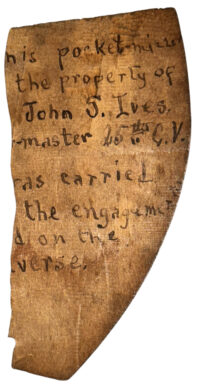 his pocket-mirr
the property of
John S. Ives.
-master 25th C.V.
was carried
the engagemen
d on the
verse.